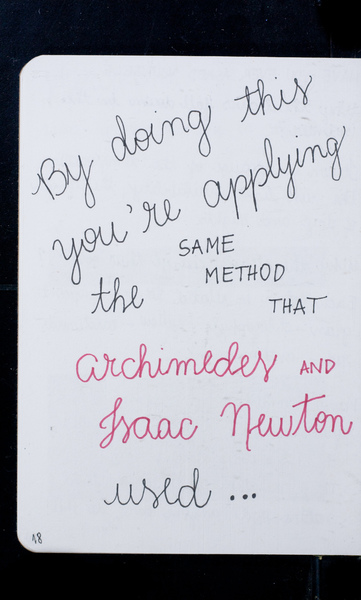 By doing this
you're applying
the SAME
METHOD
THAT
archimedes AND
Isaac Newton
used...
18